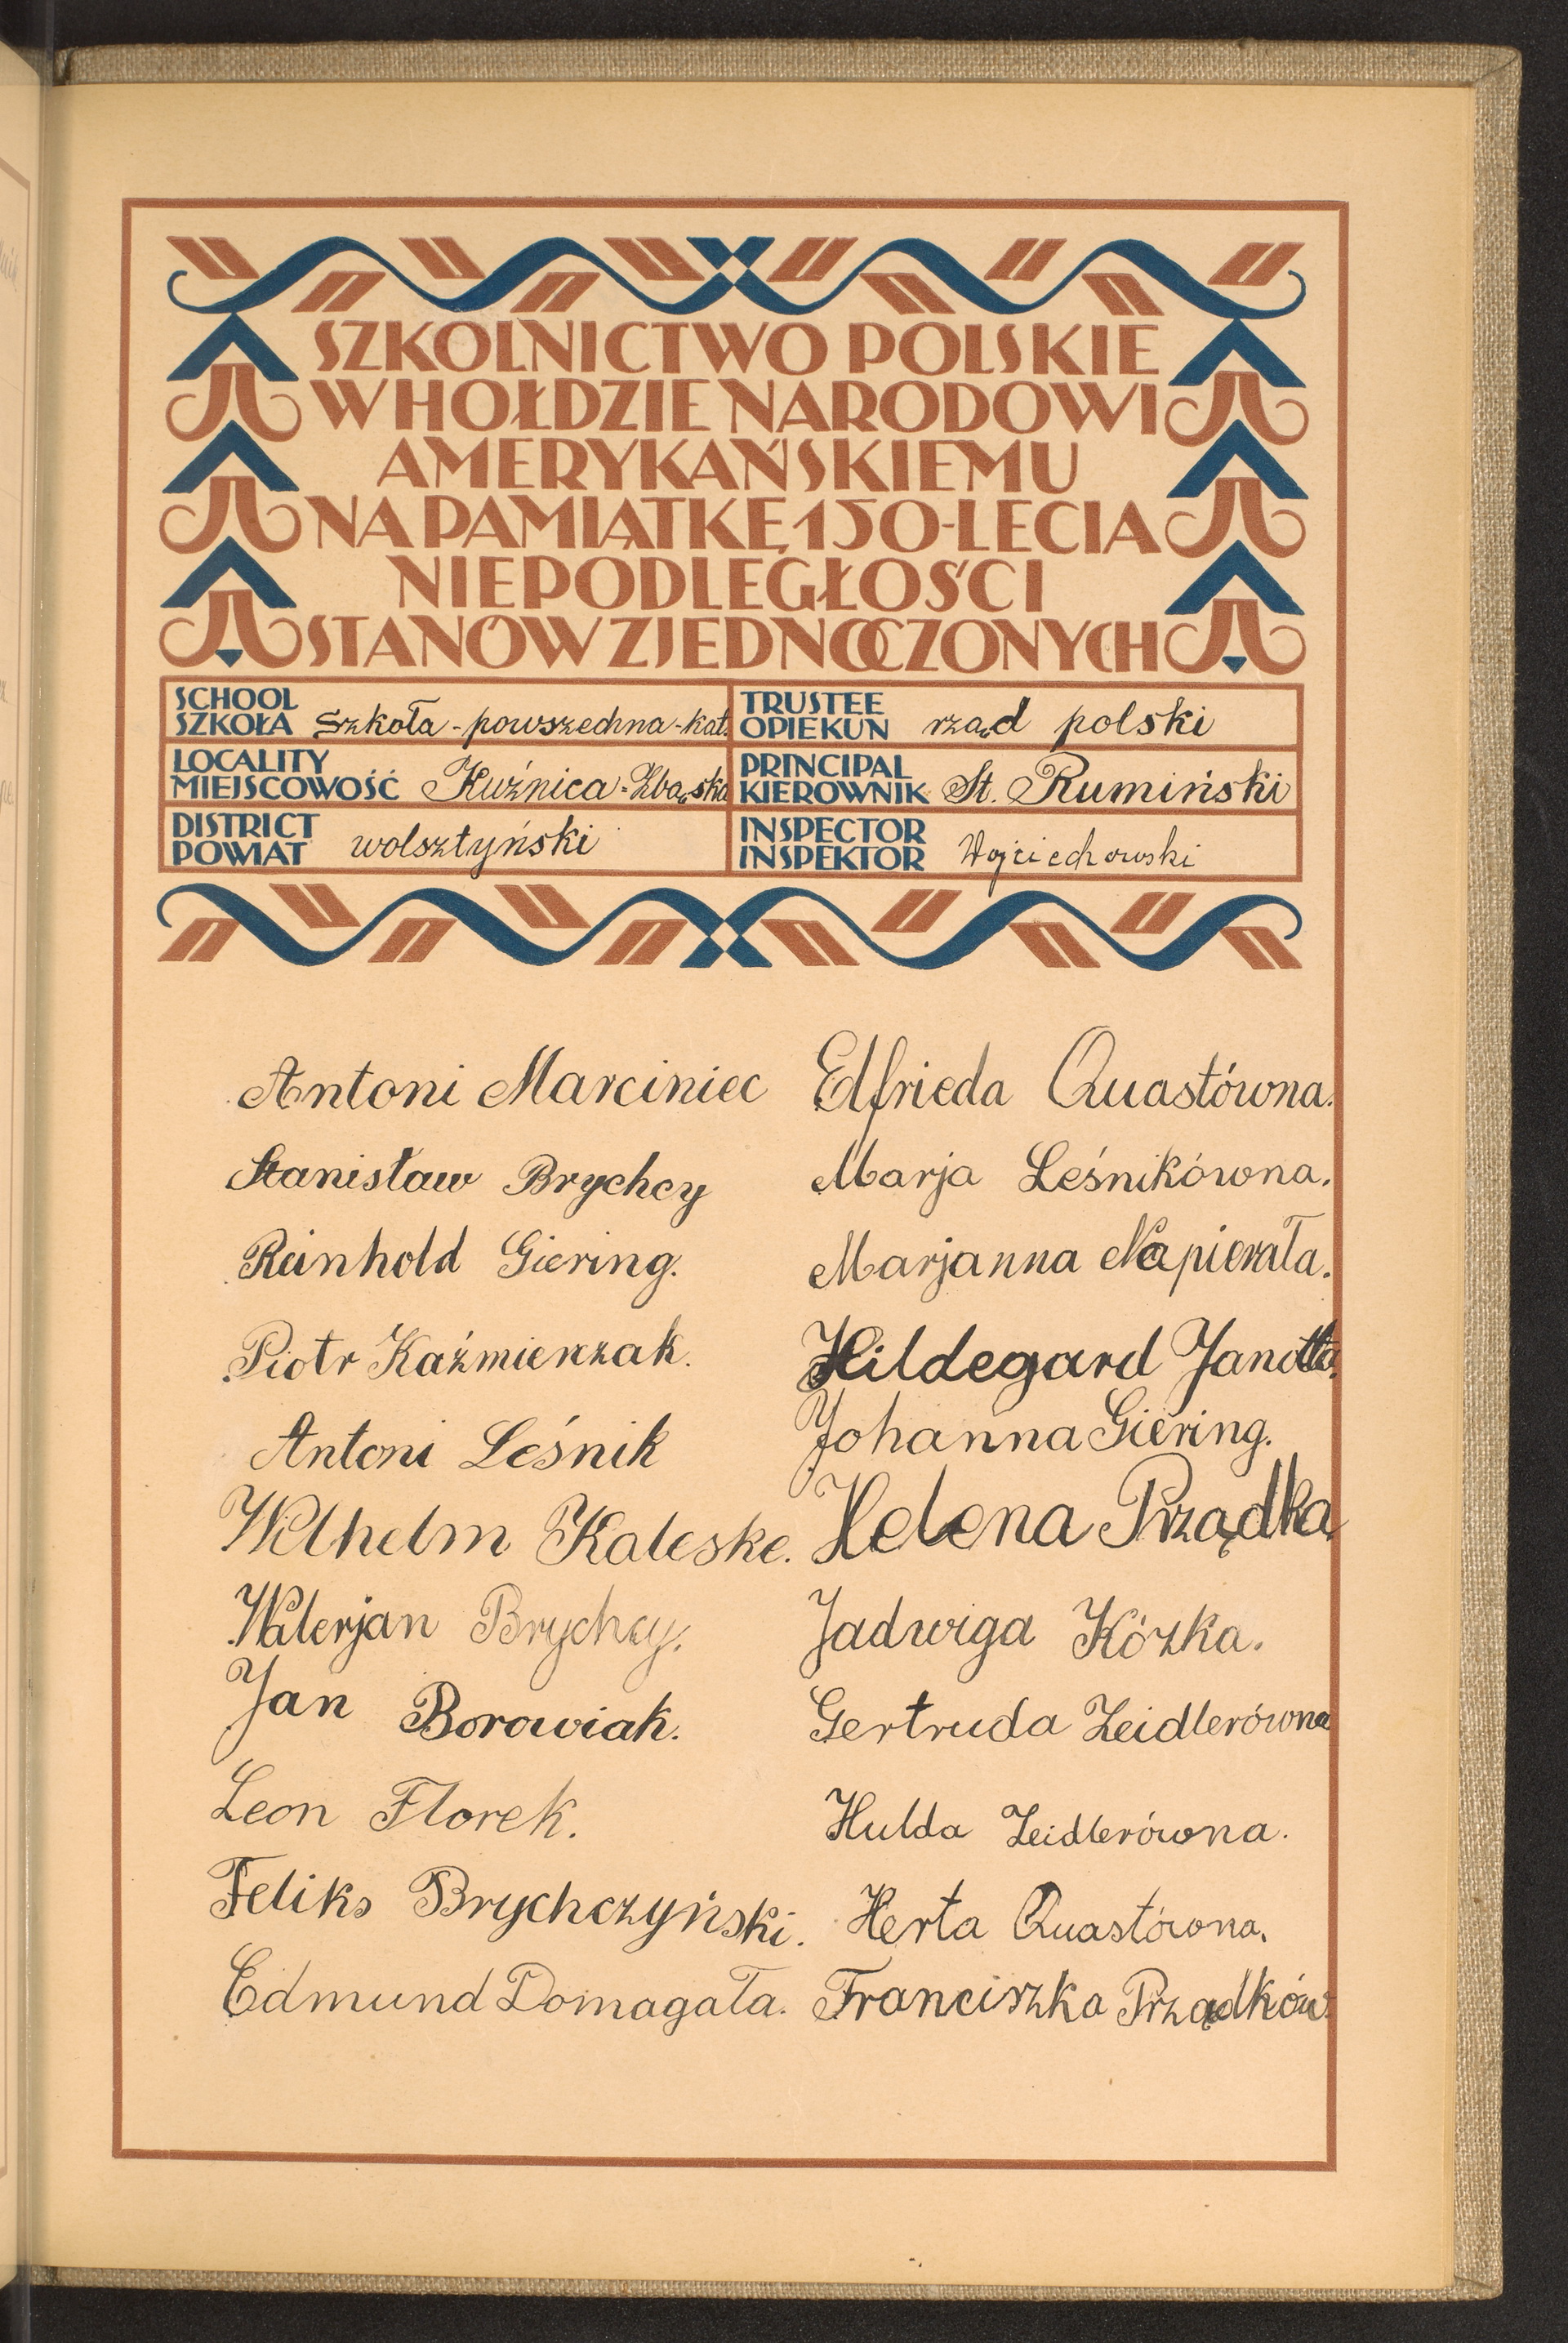 SZKOLNICTWO POLSKIE
W HOŁDZIE NARODOWI
AMERYKAŃSKIEMU
NA PAMIĄTKĘ 150-LECIA
NIEPODLEGŁOŚCI
STANÓW ZJEDNOCZONYCH
SCHOOL
SZKOŁA Szkoła-powszechna-kat.
TRUSTEE
OPIEKUN rząd polski
LOCALITY
MIEJSCOWOŚĆ Kuźnica-Zbąska
PRINCIPAL
KIEROWNIK St. Rumiński
DISTRICT
POWIAT wolsztyński
INSPECTOR
INSPEKTOR Wojciechowski
Antoni Marciniec
Stanisław Brychcy
Reinhold Giering.
Piotr Kaźmierczak.
Antoni Leśnik
Wilhelm Kaleske.
Walerjan Brychcy.
Jan Borowiak.
Leon Florek.
Feliks Brychczyński.
Edmund Domagała.
Elfrieda Quastówna.
Marja Leśnikówna.
Marjanna Napierała.
Hildegard Janotta.
Johanna Giering.
Helena Prządka
Jadwiga Kózka.
Gertruda Zeidlerówna
Hulda Zeidlerówna.
Herta Quastówna.
Franciszka Prządków.